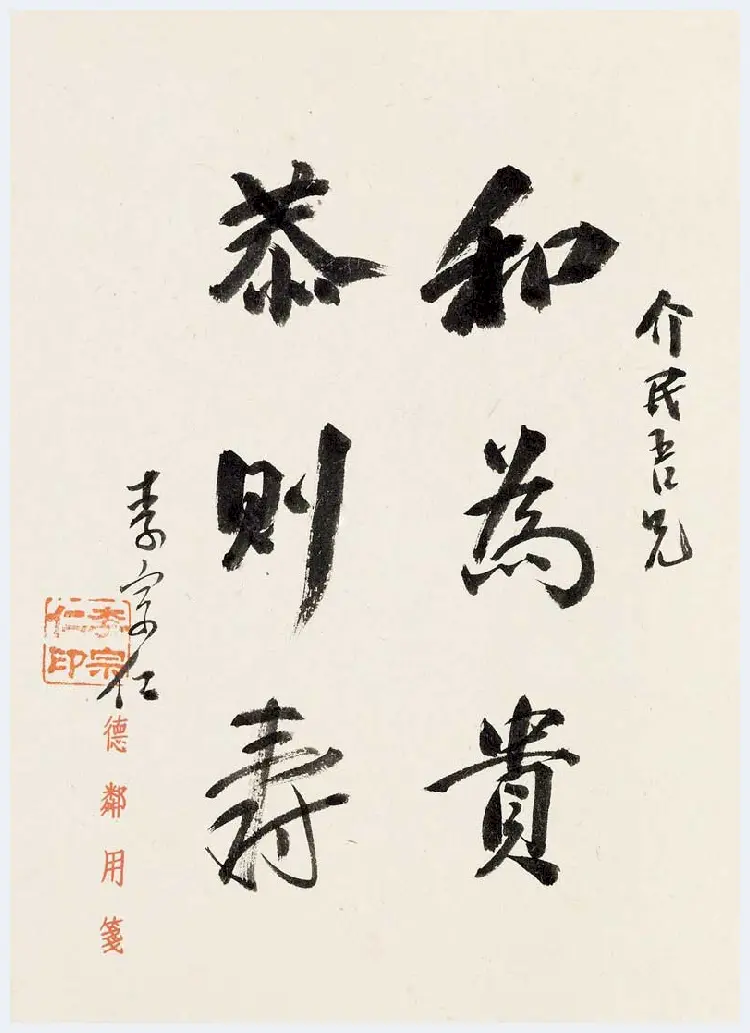 介民吾兄
和為貴
恭則壽
李宗仁
李宗仁印
德鄰用箋